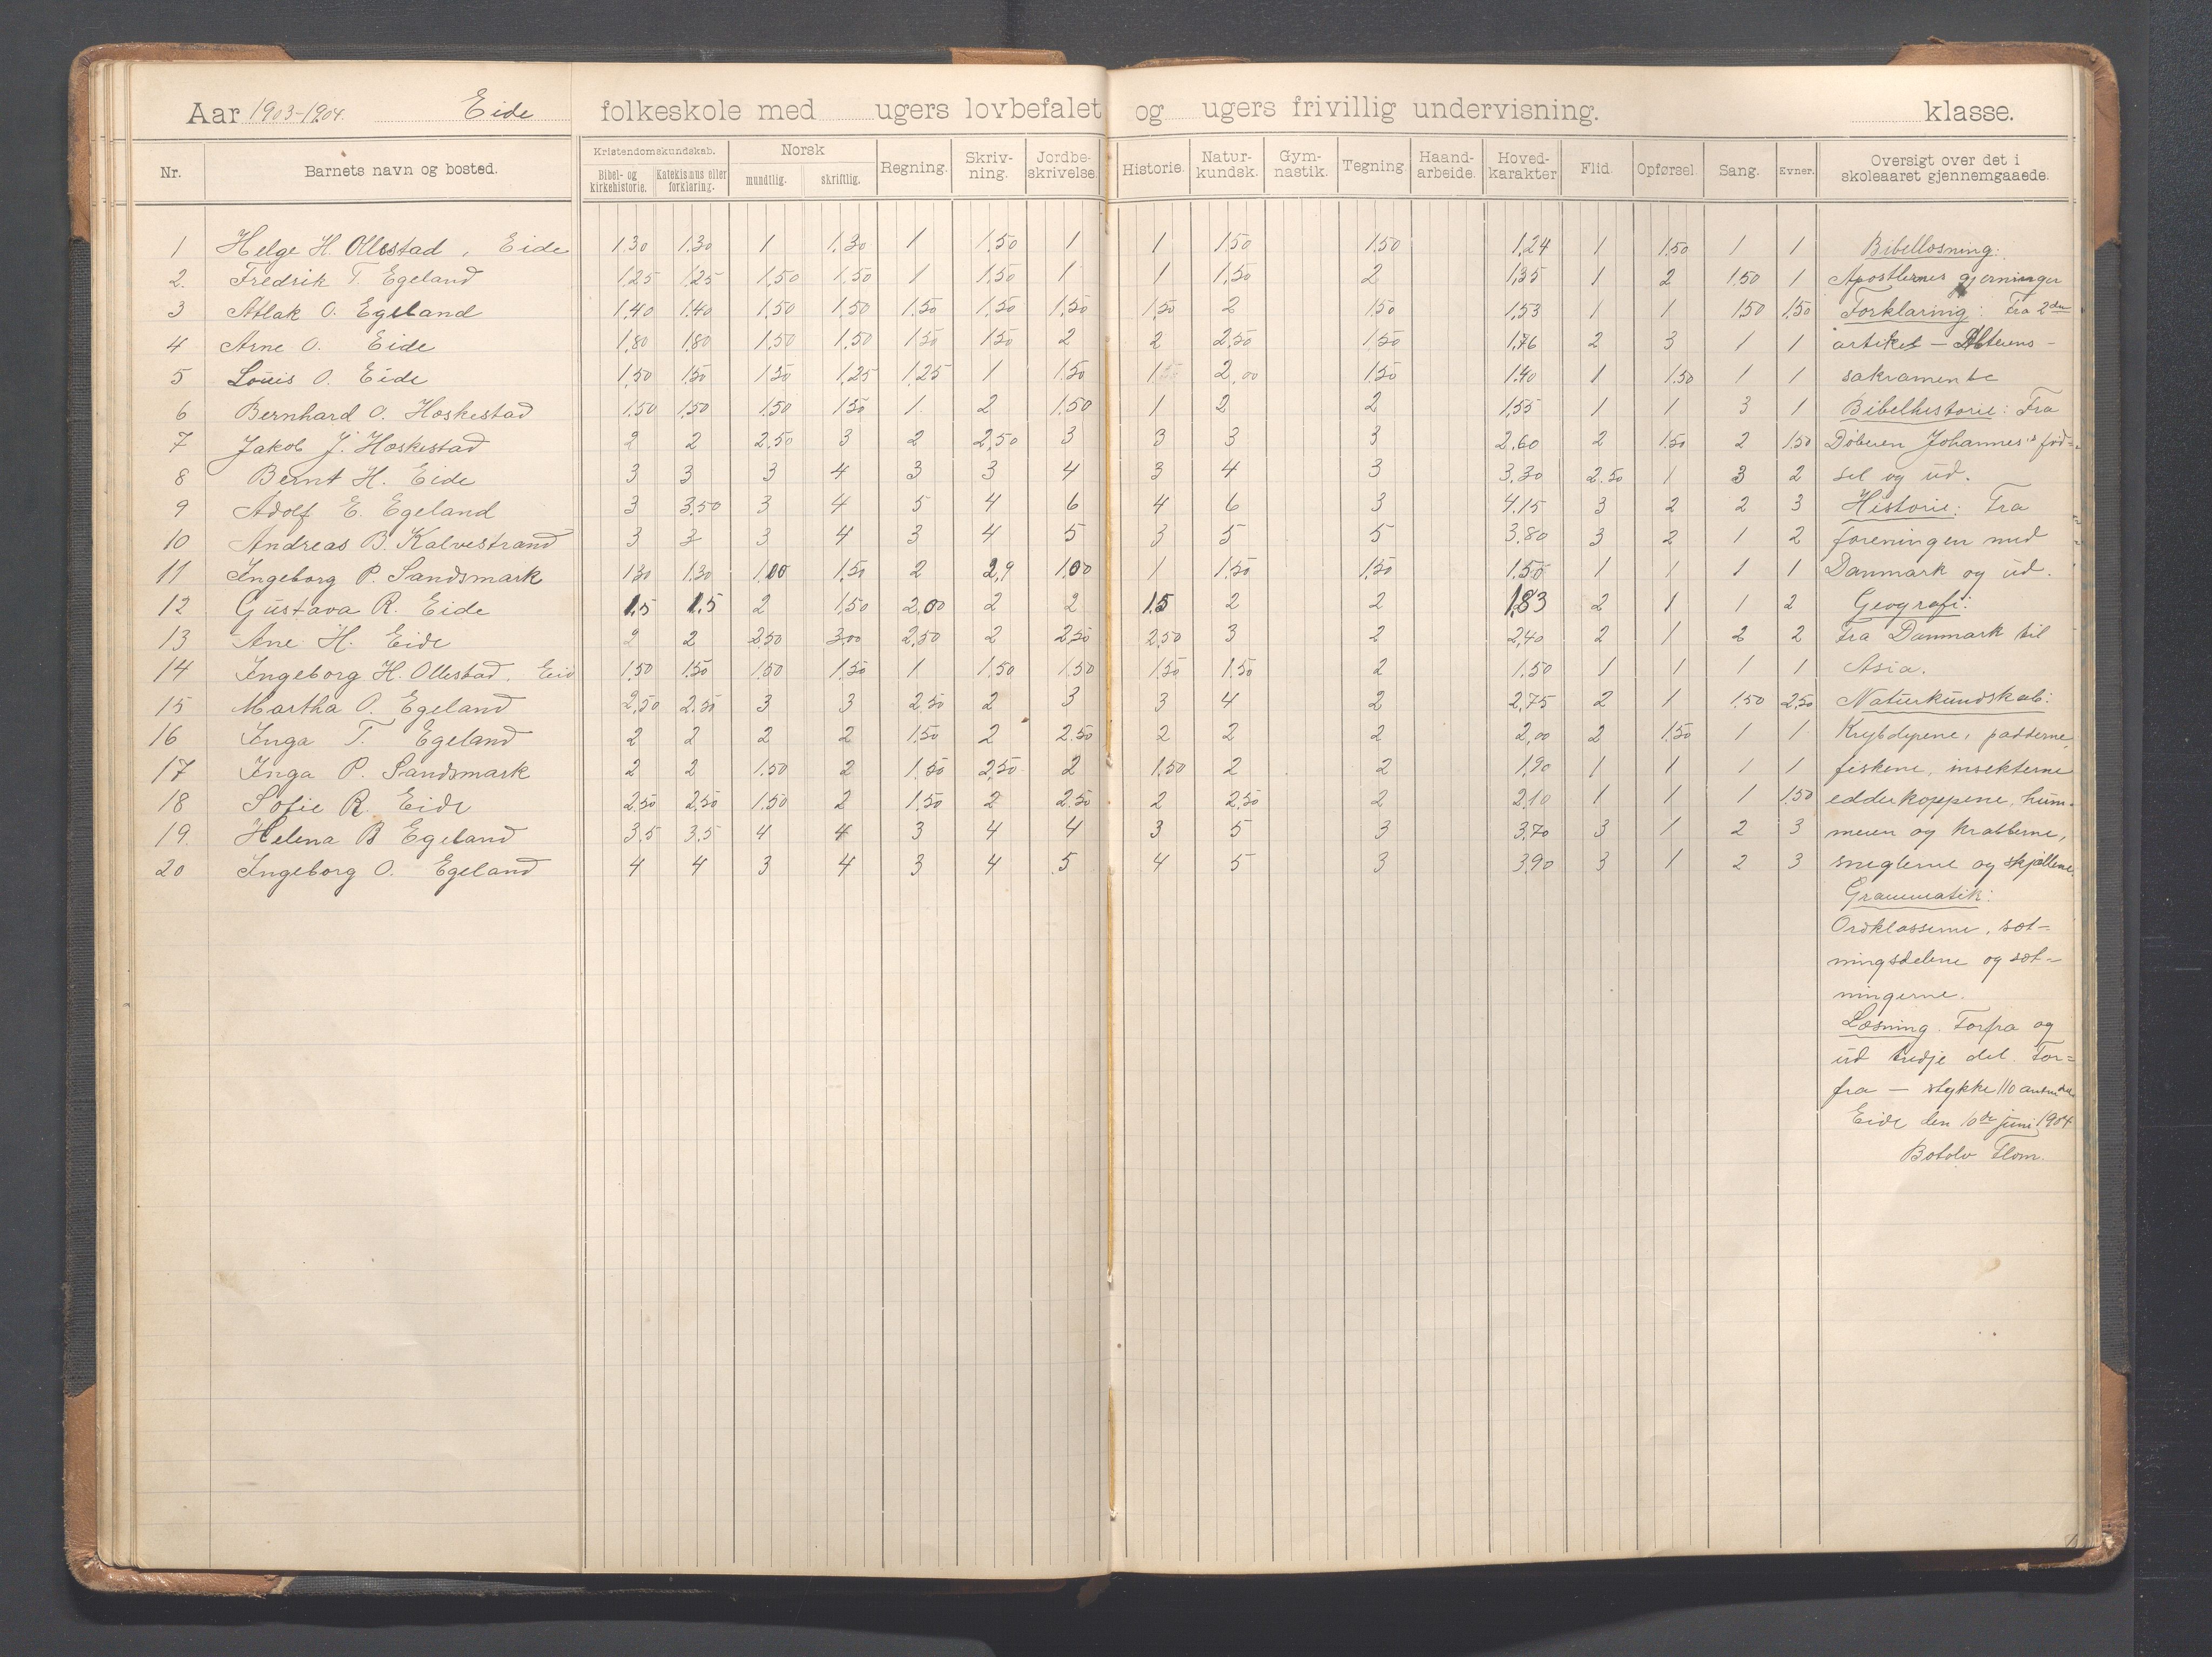 Aar 1903-1904. Eide folkeskole med ugers lovbefalet og ugers frivillig undervisning. klasse.
Nr. Barnets navn og bosted. Kristendomskundskab. Bibel- og kirkehistorie. Katekismus eller forklaring. Norsk mundtlig. skriftlig. Regning. Skriv-ning. Jordbe-skrivelse. Historie. Natur-kundsk. Gym-nastik. Tegning. Haand-arbeide. Hoved-karakter Flid. Opførsel. Sang. Evner. Oversigt over det i skoleaaret gjennemgaaede.
1 Helge H. Ollestad, Eide 1.30 1.30 1 1.30 1 1.50 1 1 1.50 1.50 1.24 1 1.50 1 1 Bibellæsning:
2. Fredrik T. Egeland 1.25 1.25 1,50 1.50 1 1.50 1 1 1,50 2 1,35 1 2 1.50 1 Apostlernes gjerninger
3 Atlak O. Egeland 1.40 1.40 1,50 1,50 1.50 1,50 1,50 1,50 2 1.50 1,53 1 1 1.50 1.50 Forklaring: Fra 2den
4 Arne O. Eide 1,80 1,80 1,50 1,50 1.50 1.50 2 2 2,50 1.50 1,76 2 3 1 1 artikel - Alterens-
5 Louis O. Eide 1,50 1.50 1.50 1,25 1,25 1 1.50 1.50 2,00 1.50 1.40 1 1.50 1 1 sakramente
6 Bernhard O. Hoskestad 1.50 1,50 1.50 1.50 1 2 1.50 1 2 2 1,55 1 1 3 1 Bibelhistorie: Fra
7 Jakob J. Hoskestad 2 2 2.50 3 2 2,50 3 3 3 3 2,60 2 1.50 2 1.50 Døberen Johannes's fød-
8 Bernt H. Eide 3 3 3 4 3 3 4 3 4 3 3,30 2.50 1 3 2 sel og ud.
9 Adolf E. Egeland 3 3.50 3 4 5 4 6 4 6 3 4.15 3 2 2 3 Historie: Fra
10 Andreas B. Kalvestrand 3 3 3 4 3 4 5 3 5 5 3.80 3 2 1 2 foreningen med
11 Ingeborg P. Sandsmark 1.30 1.30 1.00 1,50 2 2,9 1.00 1 1.50 1,50 1.50 1 1 1 1 Danmark og ud.
12 Gustava R. Eide 1,5 1,5 2 1,50 2,00 2 2 1.5 2 2 1,83 2 1 1 2 Geografi:
13 Ane H. Eide 2 2 2.50 3,00 2,50 2 2.50 2,50 3 2 2,40 2 1 2 2 Fra Danmark til
14 Ingeborg H. Ollestad. Eid 1,50 1.50 1.50 1,50 1 1.50 1.50 1.50 1.50 2 1,50 1 1 1 1 Asia.
15 Martha O. Egeland 2,50 2.50 3 3 2.50 2 3 3 4 2 2,75 2 1 1.50 2.50 Naturkundskab:
16 Inga T. Egeland 2 2 2 2 1.50 2 2.50 2 2 2 2,00 2 1.50 1 1 Krybdyrene, padderne,
17 Inga P. Sandsmark 2 2 1.50 2 1.50 2,50 2 1.50 2 2 1,90 1 1 1 1 fiskene, insekterne
18 Sofie R. Eide 2,50 2,50 1.50 2 1.50 2 2.50 2 2,50 2 2.10 1 1 1 1.50 edderkoppene, hum-
19. Helena B Egeland 3.5 3,5 4 4 3 4 4 3 5 3 3,70 3 1 2 3 meren og krabberne,
20 Ingeborg O. Egeland 4 4 3 4 3 4 5 4 5 3 3,90 3 1 2 3 sneglerne og skjællene.
Grammatik:
Ordklasserne, sæt-
ningsdelene og sæt-
ningerne.
Læsning. Forfra og
ud tredje del. For-
fra - stykke 110
Eide den 10de juni 1904
Botolv Flom.